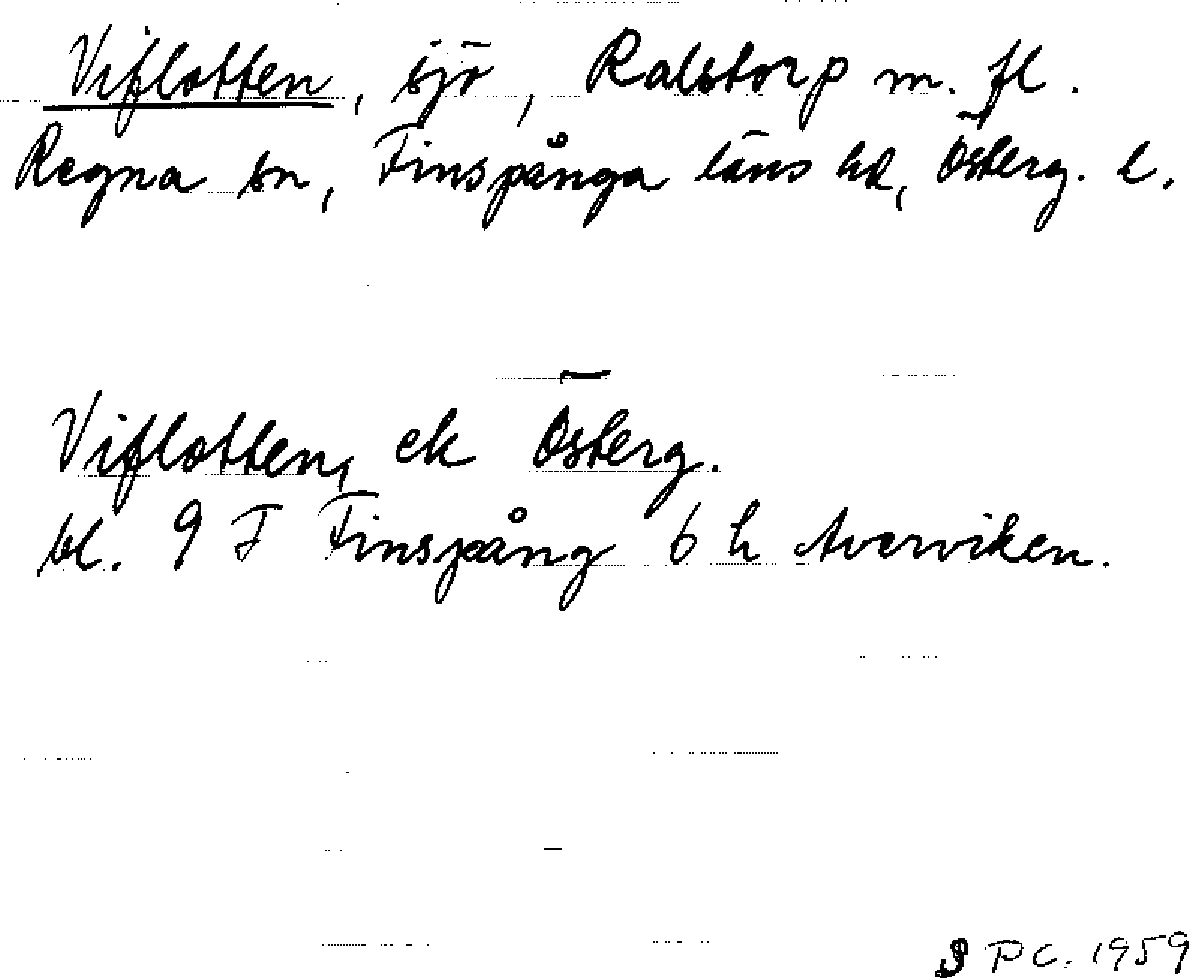 Viflotten, sjö, Ralstorp m. fl.
Regna sn, Finspånga läns hd, Österg. l.
Viflotten, ek Österg.
bl. 9 F Finspång 6 h Averviken.
PC. 1959